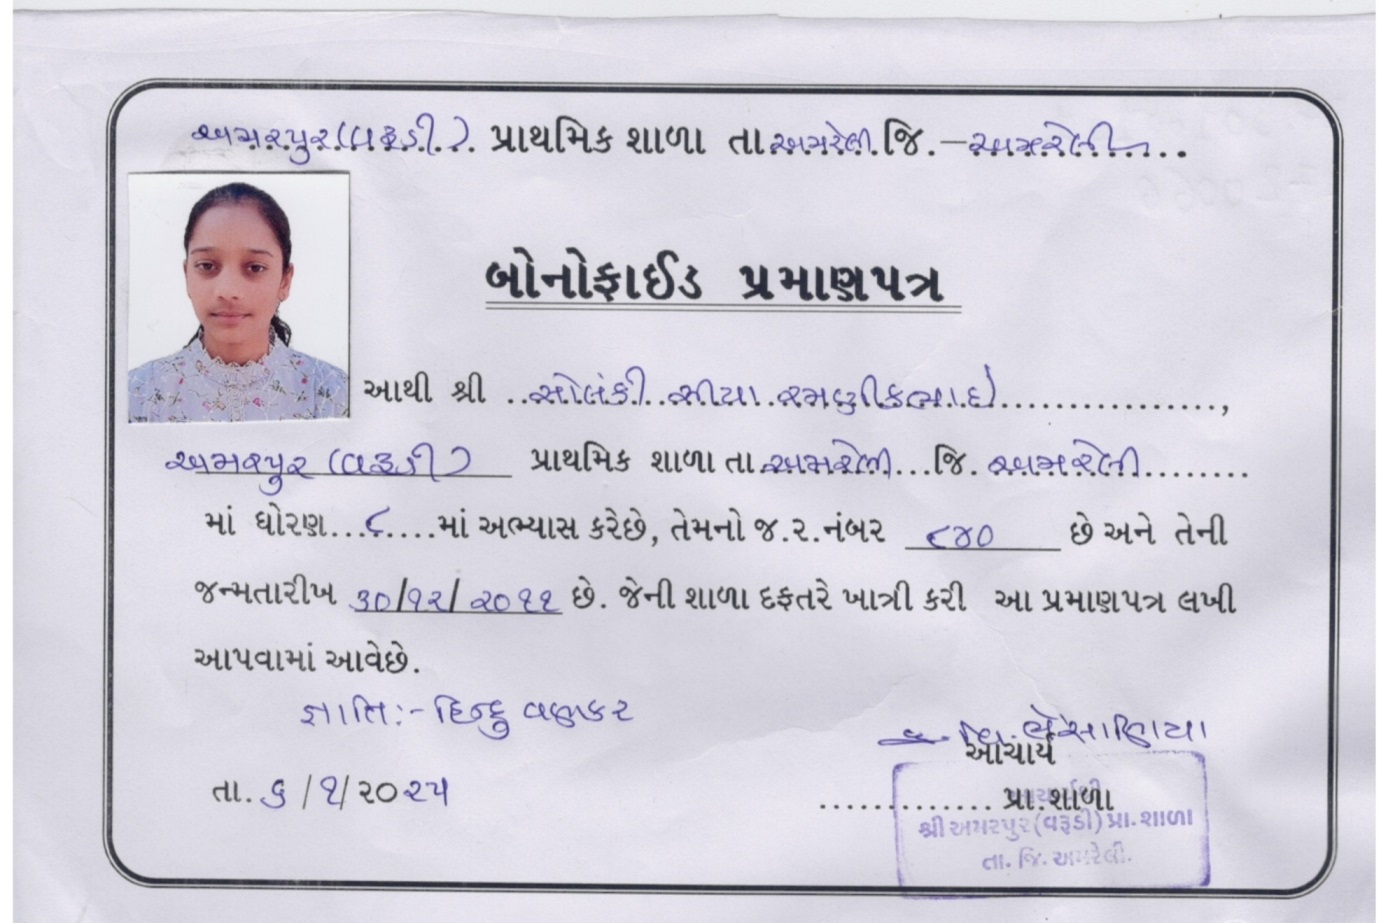 અમરપુર(વરૂડી). પ્રાથમિક શાળા તા.અમરેલી.જિ.–અમરેલી....
બોનોફાઈડ પ્રમાણપત્ર
આથી શ્રી ..સોલંકી..સીયા.રમણીકભાઈ.................,
અમરપુર (વરૂડી) પ્રાથમિક શાળા તા.અમરેલી...જિ. અમરેલી.........
માં ધોરણ...૮....માં અભ્યાસ કરેછે, તેમનો જ.ર.નંબર ૮૪૦ છે અને તેની
જન્મતારીખ ૩૦/૧૨/૨૦૧૧ છે. જેની શાળા દફતરે ખાત્રી કરી આ પ્રમાણપત્ર લખી
આપવામાં આવેછે.
જ્ઞાતિ:- હિન્દુ વણકર
આચાર્ય
તા. ૬/૧/૨૦૨૫ ............. પ્રા.શાળા
આચાર્યશ્રી
શ્રી અમરપુર(વરૂડી) પ્રા.શાળા
તા. જિ. અમરેલી.